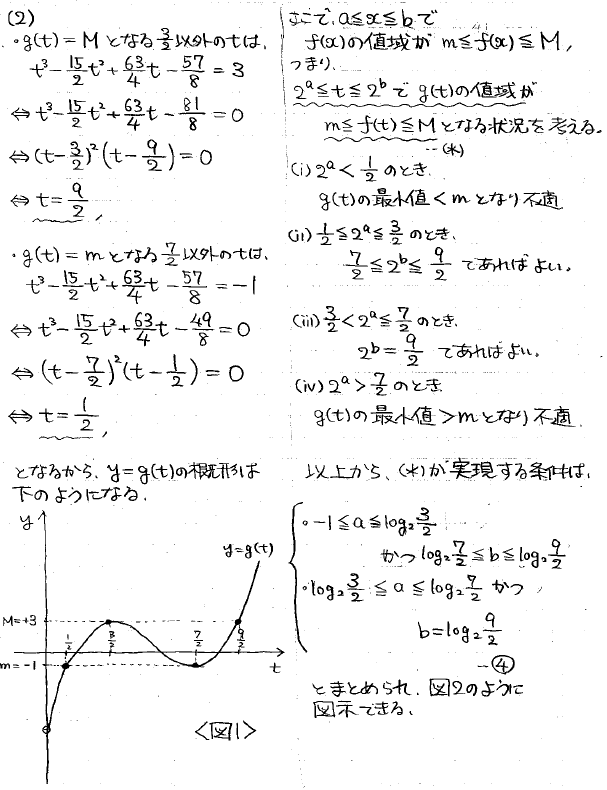 (2)
・g(t) = M となる 3/2 以外のtは、
t³ - 15/2 t² + 63/4 t - 57/8 = 3
⇔ t³ - 15/2 t² + 63/4 t - 81/8 = 0
⇔ (t - 3/2)² (t - 9/2) = 0
⇔ t = 9/2,
・g(t) = m となる 7/2 以外のtは、
t³ - 15/2 t² + 63/4 t - 57/8 = -1
⇔ t³ - 15/2 t² + 63/4 t - 49/8 = 0
⇔ (t - 7/2)² (t - 1/2) = 0
⇔ t = 1/2,
となるから、y=g(t)の概形は
下のようになる.
y
y=g(t)
M=+3
1/2 3/2 7/2 9/2
m=-1
t
<図1>
ここで、a≦x≦b で
f(x)の値域が m≦f(x)≦M,
つまり、
2^a≦t≦2^b で g(t)の値域が
m≦f(t)≦M となる状況を考える.
…(*)
(i) 2^a < 1/2 のとき、
g(t)の最小値 < m となり不適
(ii) 1/2 ≦ 2^a ≦ 3/2 のとき、
7/2 ≦ 2^b ≦ 9/2 であればよい。
(iii) 3/2 < 2^a ≦ 7/2 のとき、
2^b = 9/2 であればよい。
(iv) 2^a > 7/2 のとき
g(t)の最小値 > m となり不適.
以上から、(*)が実現する条件は、
・-1 ≦ a ≦ log₂ 3/2
かつ log₂ 7/2 ≦ b ≦ log₂ 9/2
・log₂ 3/2 ≦ a ≦ log₂ 7/2 かつ
b = log₂ 9/2
…④
とまとめられ、図2のように
図示できる.